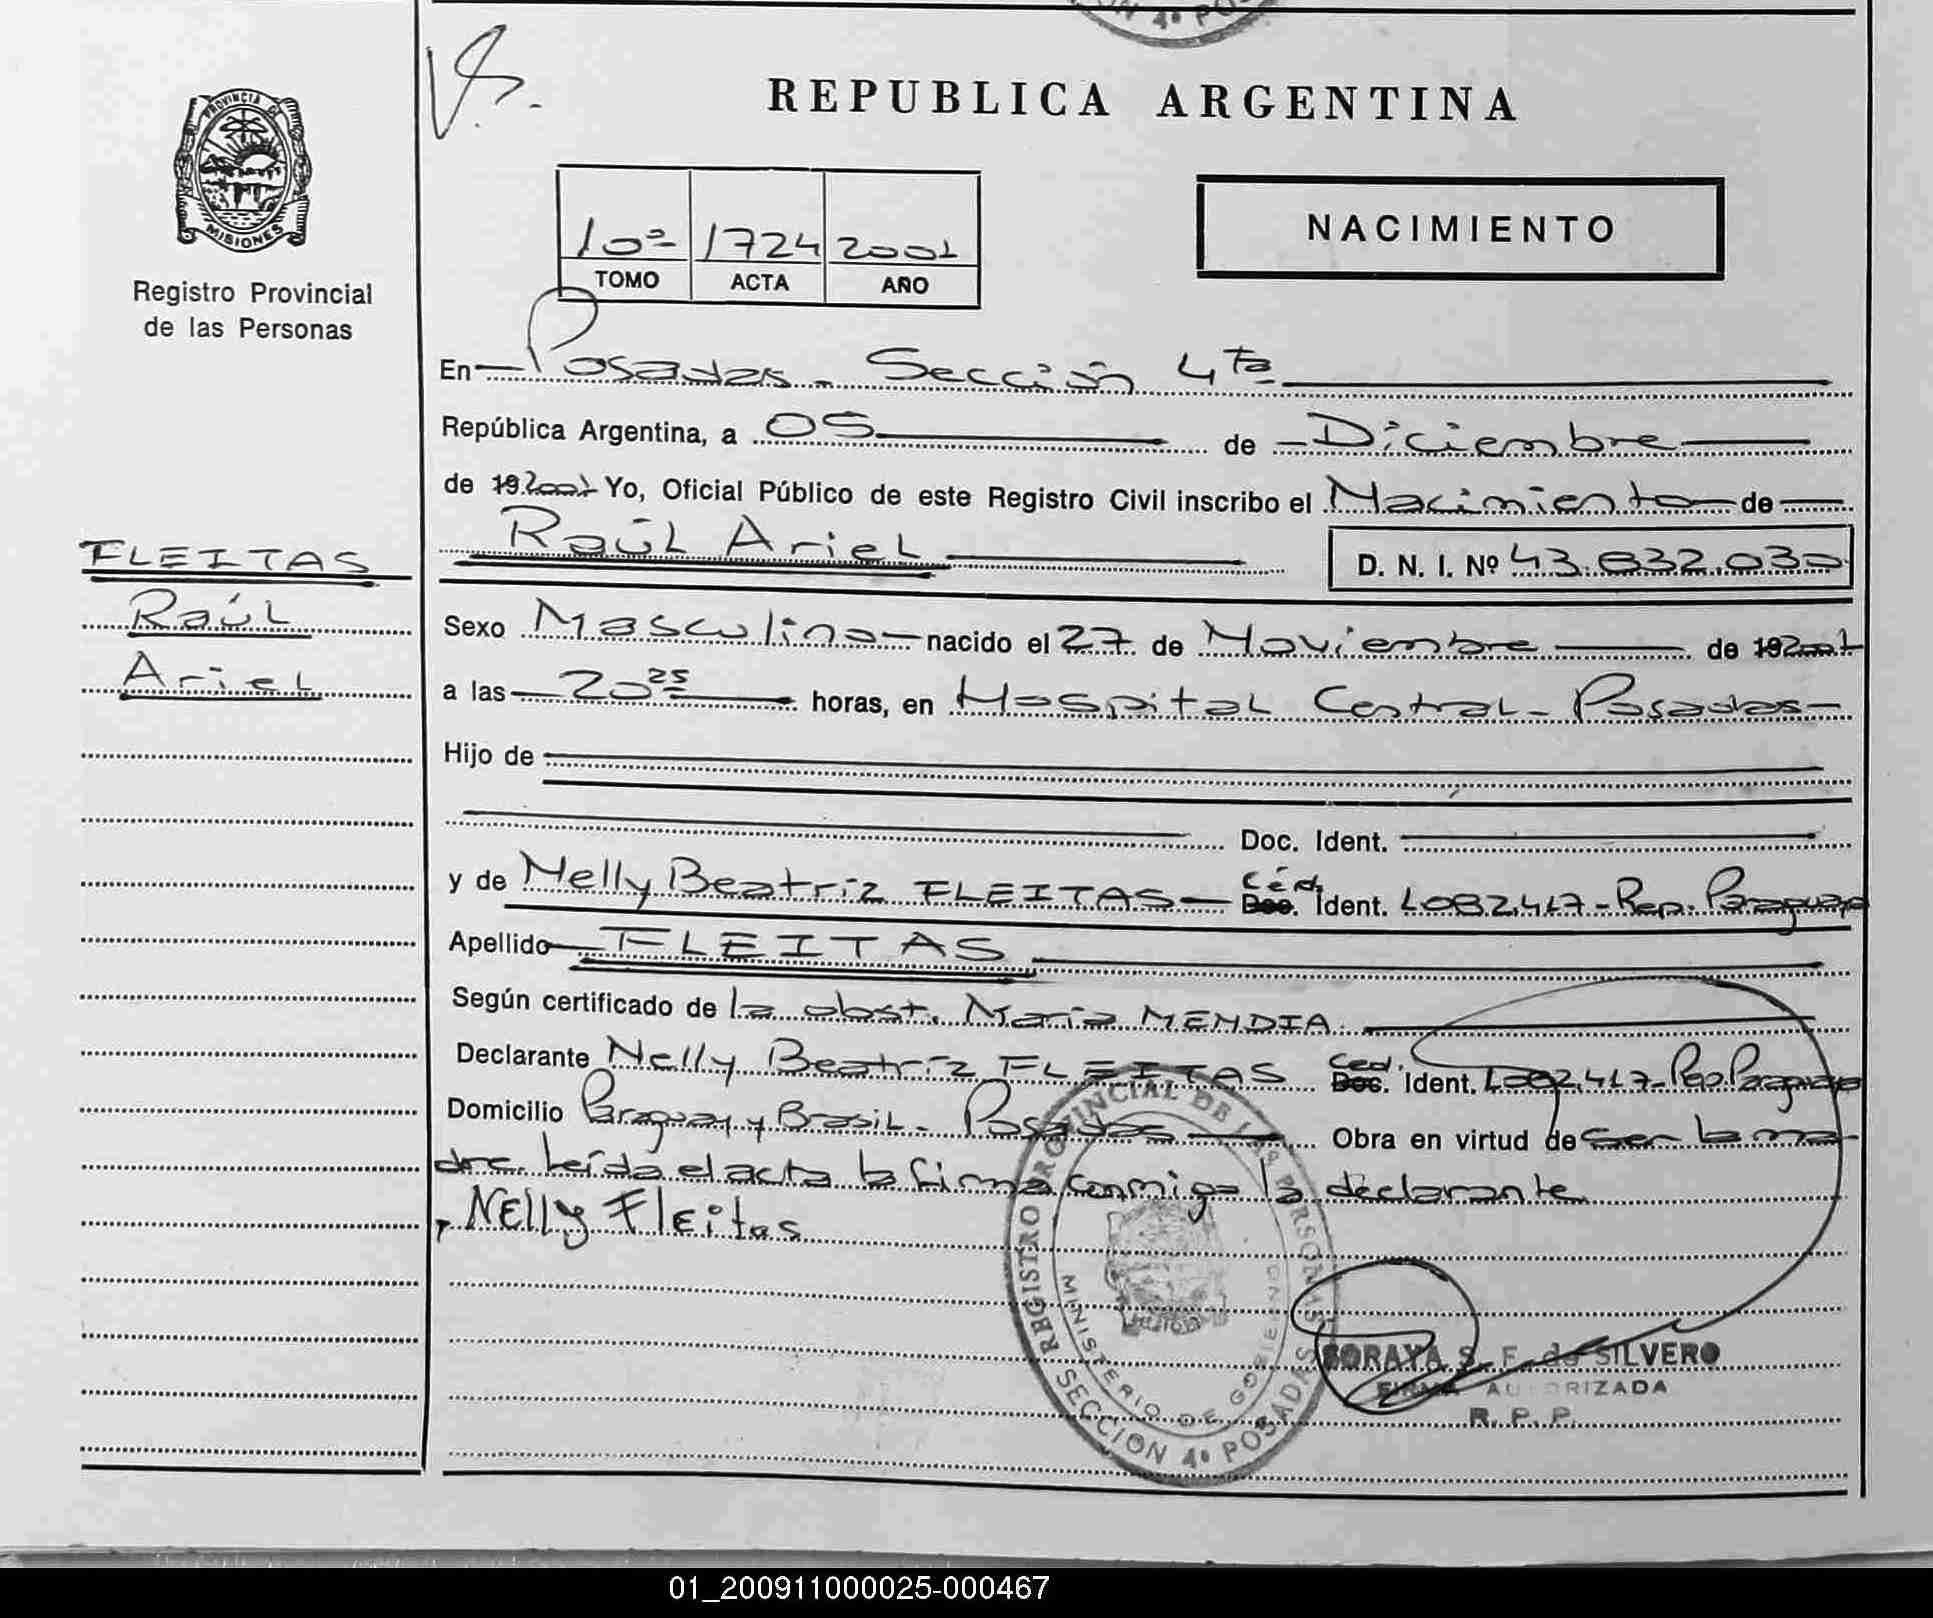 N 4ª PO
REPUBLICA ARGENTINA
PROVINCIA D
MISIONES
Registro Provincial
de las Personas
10º 1724 2001
TOMO ACTA AÑO
NACIMIENTO
En Posadas - Sección 4ta
República Argentina, a 05 de Diciembre
de 19 2001 Yo, Oficial Público de este Registro Civil inscribo el Nacimiento de
Raúl Ariel D. N. I. Nº 43.832.030
FLEITAS
Raúl
Ariel
Sexo Masculino nacido el 27 de Noviembre de 19 2001
a las 20 25 horas, en Hospital Central - Posadas -
Hijo de
Doc. Ident.
y de Nelly Beatriz FLEITAS - Céd. Doc. Ident. 4.082.417 - Rep. Paraguay
Apellido FLEITAS
Según certificado de la obst. María MENDIA.
Declarante Nelly Beatríz FLEITAS Ced. Doc. Ident. 4.082.417 - Rep. Paraguay
Domicilio Paraguay y Brasil - Posadas Obra en virtud de ser la ma-
dre. Leída el acta la firma conmigo la declarante
Nelly Fleitas
REGISTRO PROVINCIAL DE LAS PERSONAS
MINISTERIO DE GOBIERNO
SECCION 4ª POSADAS
SORAYA S. F. de SILVERO
FIRMA AUTORIZADA
R. P. P.
01_200911000025-000467